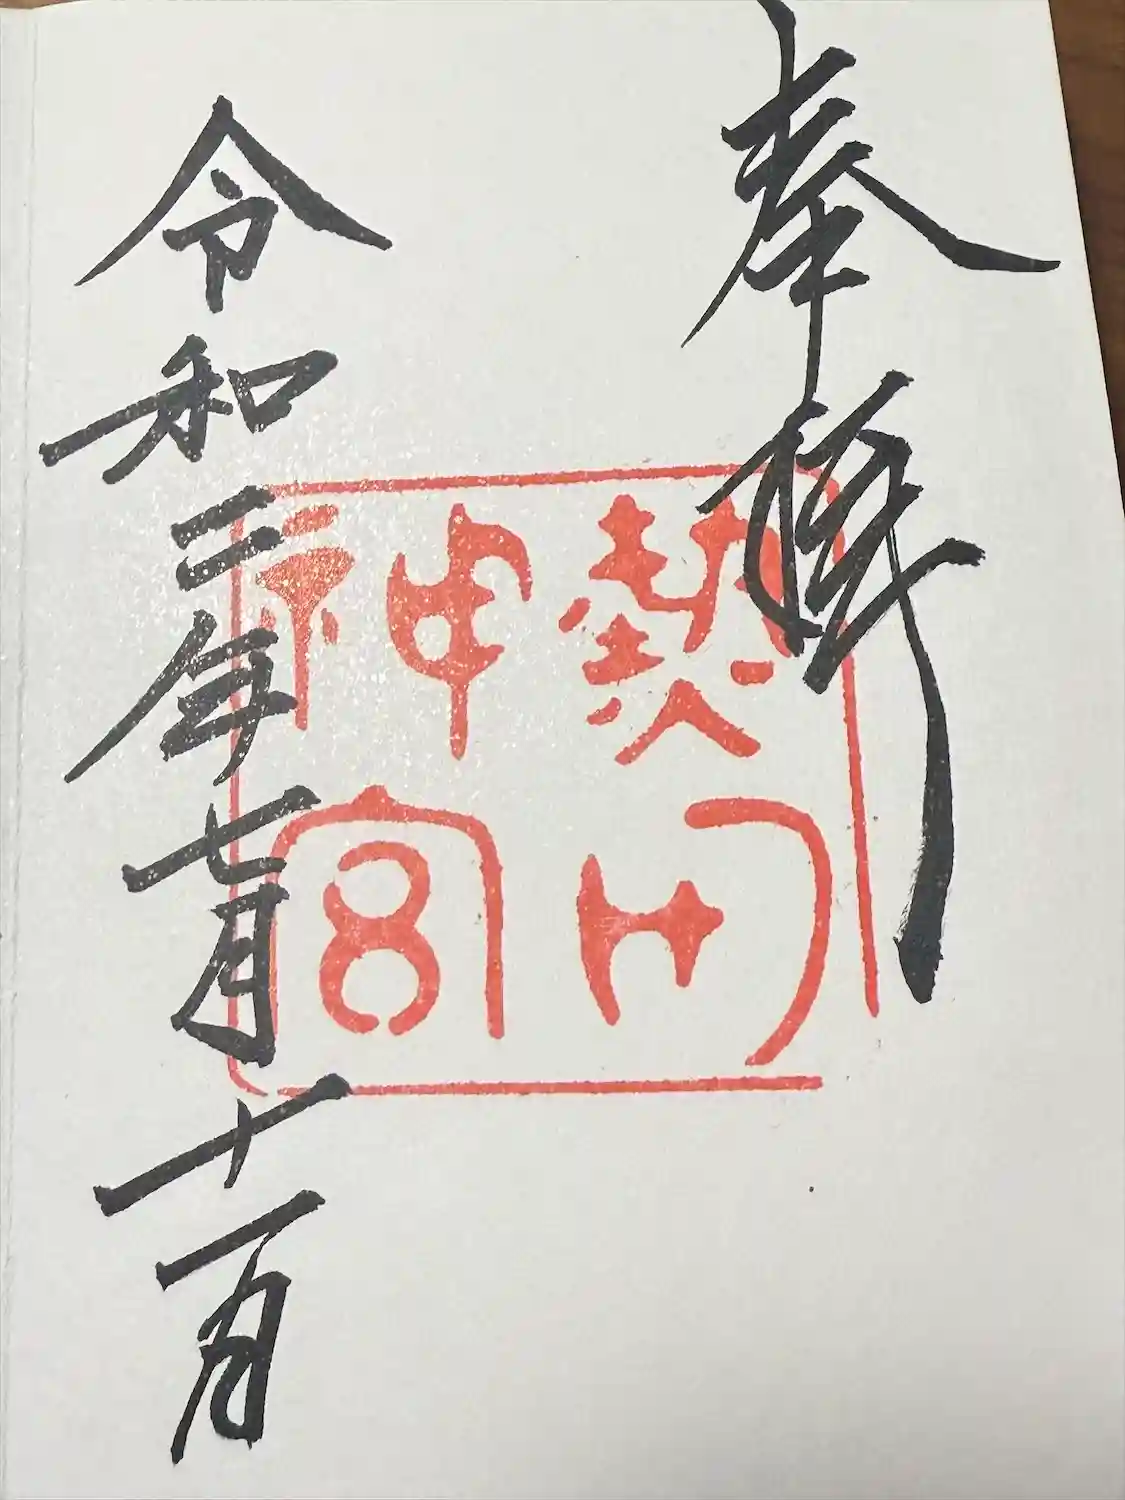 奉拝
熱田
神宮
令和三年七月十一日